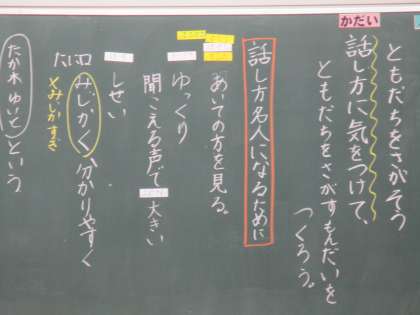 ともだちをさがそう
かだい
話し方に気をつけて、
ともだちをさがすもんだいを
つくろう。
話し方名人になるために
あいての方を見る。
ゆっくり
聞こえる声で
大きい
しせい
みじかく 分かりやすく
とみじかすぎ
という